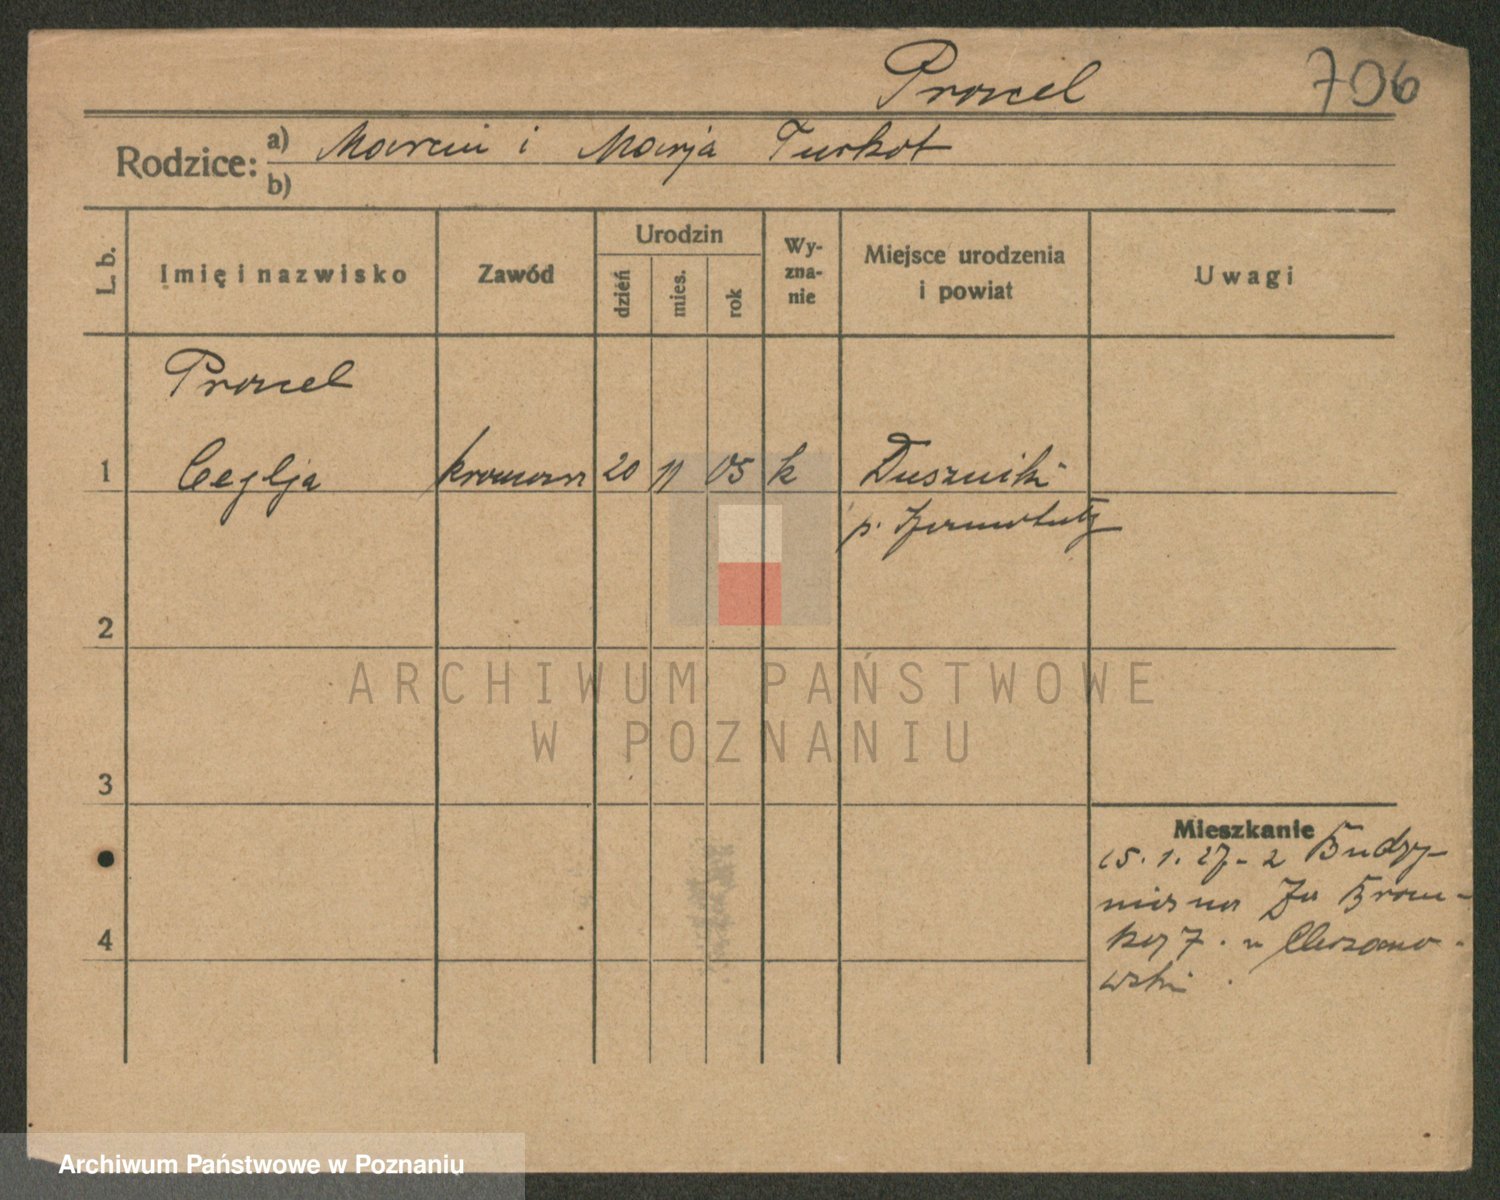 Procel
706
Rodzice: a) Marcin i Marja Turkot
b)
L. b.
Imię i nazwisko
Zawód
Urodzin
dzień
mies.
rok
Wy-
zna-
nie
Miejsce urodzenia
i powiat
Uwagi
Procel
1 Ceglja 20 11 05 k Duszniki
p. Szamotuły
2
3
4
Mieszkanie
15. 1. 27 - 2 Budzy-
7.
wski
ARCHIWUM PAŃSTWOWE
W POZNANIU
Archiwum Państwowe w Poznaniu